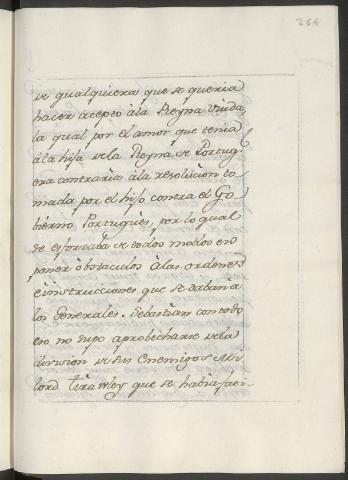 264
de qualquiera que se queria
hacer acepto à la Reyna Viuda,
la qual por el amor que tenia
à la hija de la Reyna de Portugl
era contraria à la resolucion to
mada por el hijo contra el Go
bierno Portugues, por lo qual
se esforzaba de todos modos en
poner obstaculos à las ordenes
è instrucciones que se daban à
los Generales. Sebastian con todo
eso no supo aprobecharse de la
division de sus Enemigos. Mi
lord Tirawley que se habia faci-